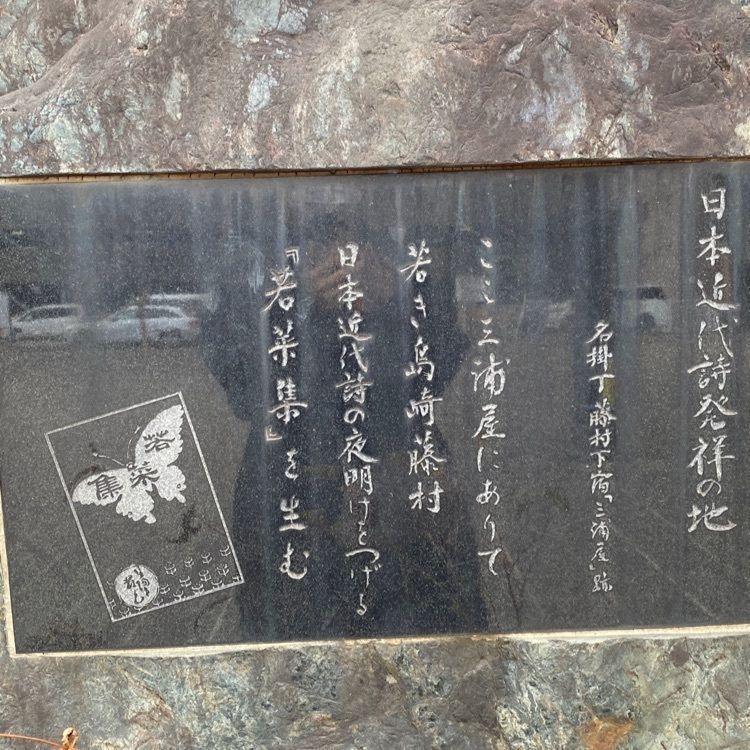 日本近代詩発祥の地
名掛丁 藤村下宿「三浦屋」跡
ここ三浦屋にありて
若き島崎藤村
日本近代詩の夜明けをつげる
『若菜集』を生む
若菜集